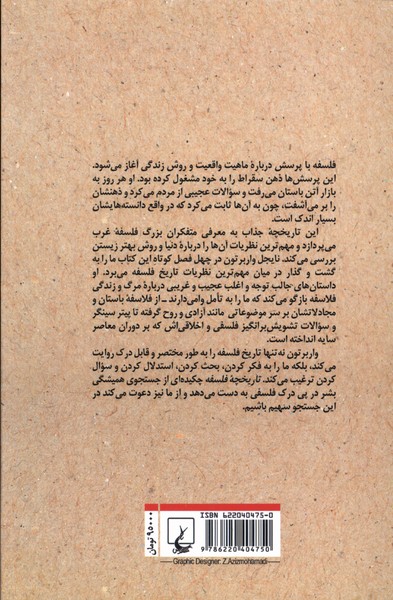 فلسفه با پرسش دربارهٔ ماهیت واقعیت و روش زندگی آغاز می‌شود.
این پرسش‌ها ذهن سقراط را به خود مشغول کرده بود. او هر روز به
بازار آتن باستان می‌رفت و سؤالات عجیبی از مردم می‌کرد و ذهنشان
را بر می‌آشفت، چون به آن‌ها ثابت می‌کرد که در واقع دانسته‌هایشان
بسیار اندک است.
این تاریخچهٔ جذاب به معرفی متفکران بزرگ فلسفهٔ غرب
می‌پردازد و مهم‌ترین نظریات آن‌ها را دربارهٔ دنیا و روش بهتر زیستن
بررسی می‌کند. نایجل واربرتون در چهل فصل کوتاهِ این کتاب ما را به
گشت و گذار در میان مهم‌ترین نظریات تاریخ فلسفه می‌برد. او
داستان‌های جالب توجه و اغلب عجیب و غریبی دربارهٔ مرگ و زندگی
فلاسفه بازگو می‌کند که ما را به تأمل وامی‌دارند ـ از فلاسفهٔ باستان و
مجادلاتشان بر سر موضوعاتی مانند آزادی و روح گرفته تا پیتر سینگر
و سؤالات تشویش‌برانگیز فلسفی و اخلاقی‌اش که بر دوران معاصر
سایه انداخته است.
واربرتون نه‌تنها تاریخ فلسفه را به طور مختصر و قابل درک روایت
می‌کند، بلکه ما را به فکر کردن، بحث کردن، استدلال کردن و سؤال
کردن ترغیب می‌کند. تاریخچهٔ فلسفه چکیده‌ای از جستجوی همیشگی
بشر در پی درک فلسفی به دست می‌دهد و از ما نیز دعوت می‌کند در
این جستجو سهیم باشیم.
۹۵۰۰۰ تومان
ISBN 622040475-0
9 786220 404750
Graphic Designer: Z.Azizmohamadi